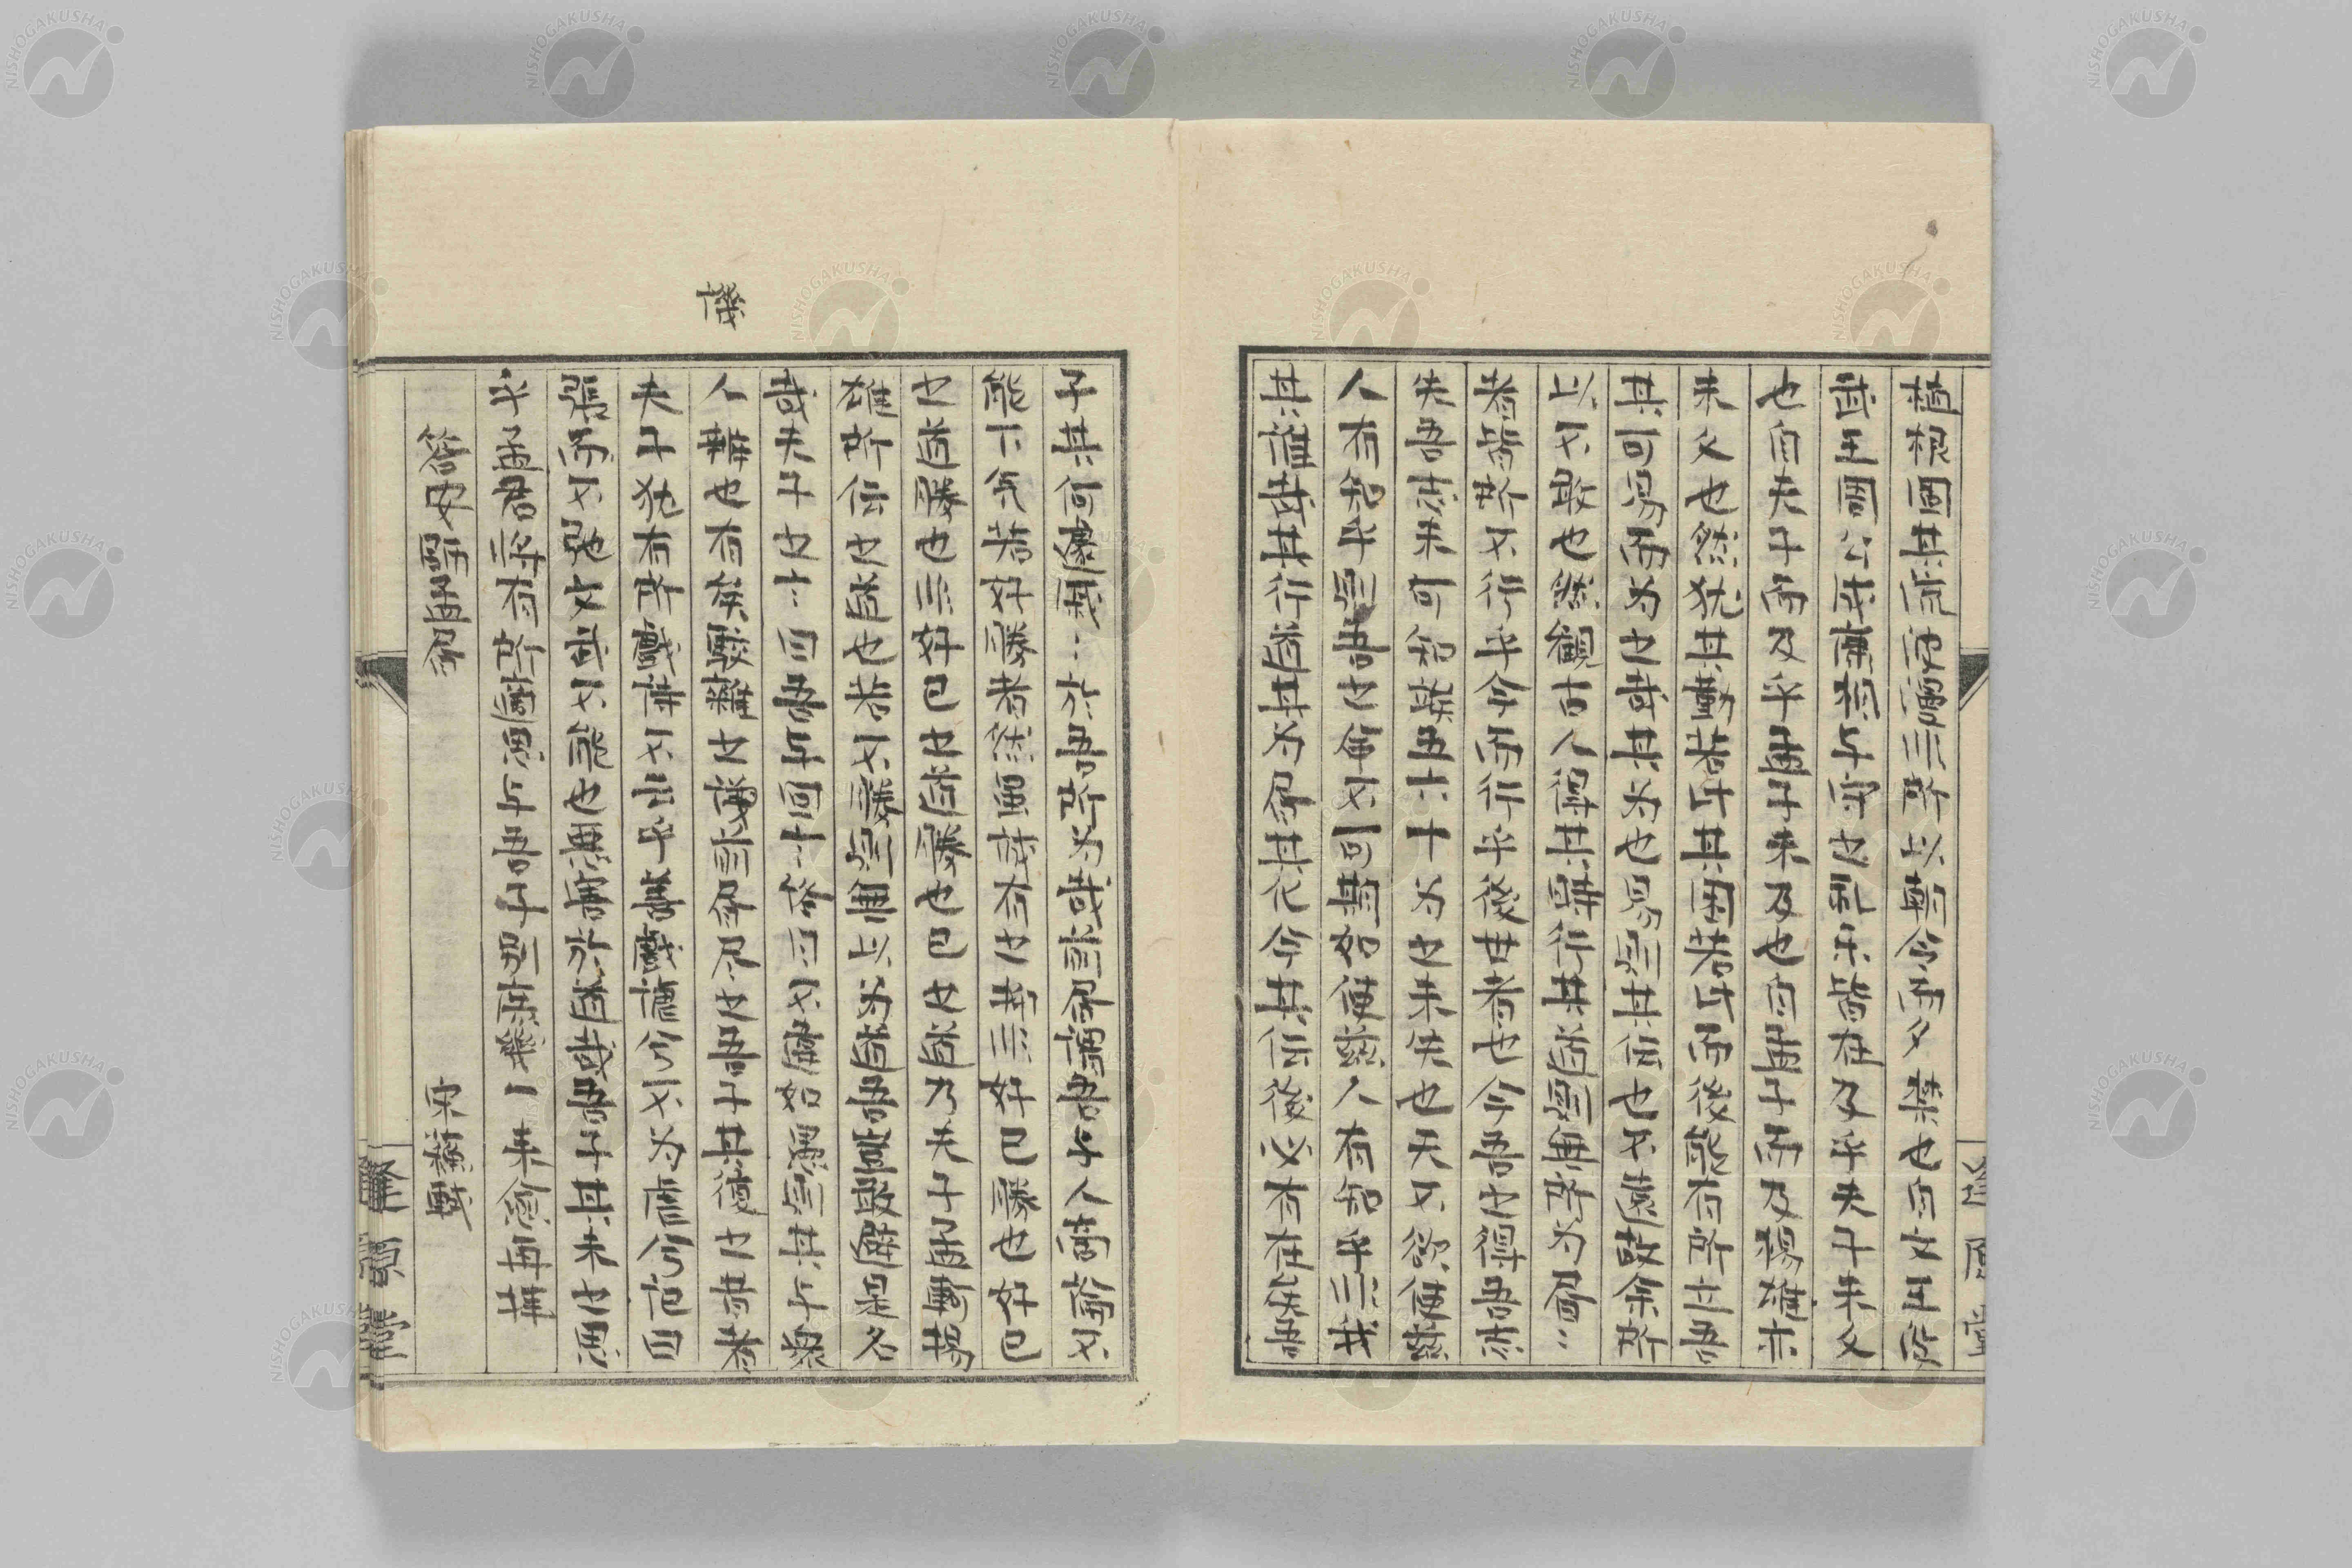 植根固其流波漫非所以朝令而夕禁也自文王沒
武王周公成康相与守之礼樂皆在及乎夫子未久
也自夫子而及乎孟子未及也自孟子而及揚雄亦
未久也然犹其勤若此其困若此而後能有所立吾
其可易而為之哉其為也易則其伝也不遠故余所
以不敢也然觀古人得其時行其道則無所為書〻
者皆所不行乎今而行乎後世者也今吾之得吾志
失吾志未可知俟五六十為之未失也天不欲使茲
人有知乎則吾之命不可期如使茲人有知乎非我
其誰哉其行道其為書其化今其伝後必有在矣吾
子其何遽戚〻於吾所為哉前書謂吾与人商論不
能下気若好勝者然雖誠有之抑非好己勝也好己
之道勝也非好己之道勝也己之道乃夫子孟軻揚
雄所伝之道也若不勝則無以為道吾豈敢避是名
哉夫子之言曰吾与回言終日不違如愚則其与衆
人辨也有矣駁雜之譏前書尽之吾子其復之昔者
夫子犹有所戲詩不云乎善戲謔兮不為虐兮記曰
張而不弛文武不能也悪害於道哉吾子其未之思
乎孟君将有所適思与吾子別庶幾一来愈再拝
答安師孟書 宋蘇軾
譏